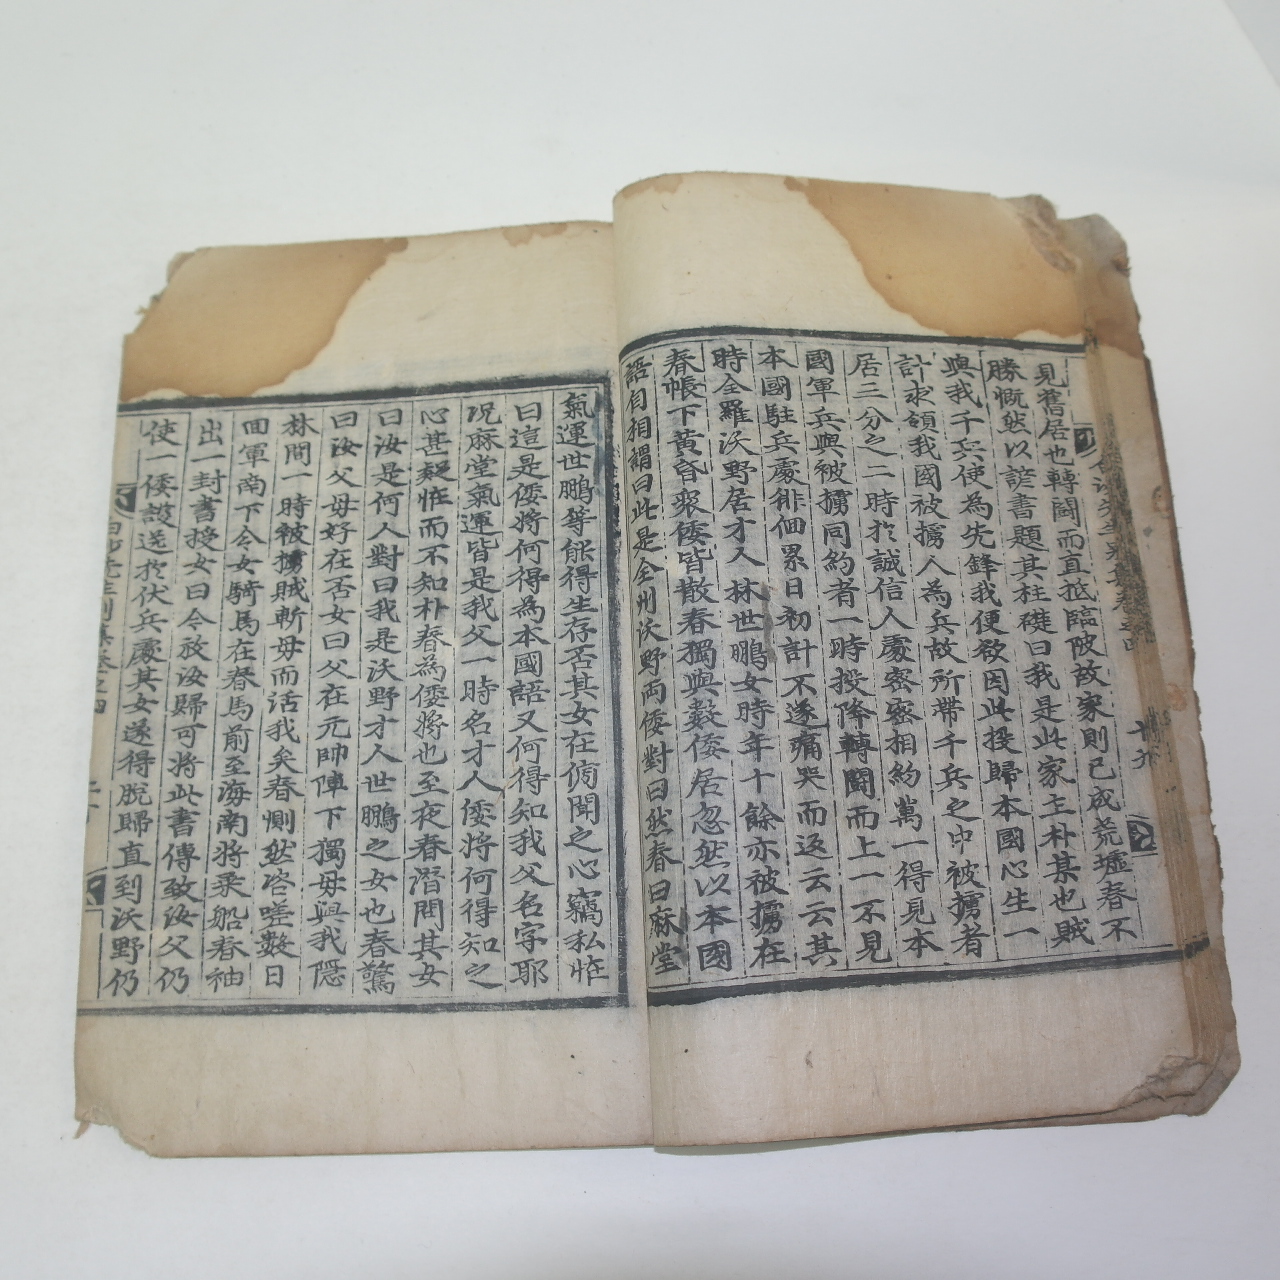 見舊居也轉鬪而直抵臨陂故家則已成荒墟春不
勝慨然以諺書題其柱礎曰我是此家主朴某也賊
與我千兵使為先鋒我便欲因此投歸本國心生一
計求領我國被擄人為兵故所帶千兵之中被擄者
居三分之二時於誠信人處密密相約萬一得見本
國軍兵與被擄同約者一時投降轉鬪而上一不見
本國駐兵處徘佪累日初計不遂痛哭而返云云其
時全羅沃野居才人林世鵬女時年十餘亦被擄在
春帳下黃昏衆倭皆散春獨與數倭居忽然以本國
語自相謂曰此是全州沃野両倭對曰然春曰麻堂
氣運世鵬等能得生存否其女在傍聞之心竊私恠
曰這是倭將何得為本國語又何得知我父名字耶
况麻堂氣運皆是我父一時名才人倭將何得知之
心甚疑恠而不知朴春為倭將也至夜春潛問其女
曰汝是何人對曰我是沃野才人世鵬之女也春驚
曰汝父母好在否女曰父在元帥陣下獨母與我隱
林間一時被擄賊斬母而活我矣春惻然咨嗟數日
回軍南下令女騎馬在春馬前至海南將乘船春袖
出一封書授女曰今放汝歸可將此書傳致汝父仍
使一倭護送於伏兵處其女遂得脫歸直到沃野仍
白沙先生別集卷之四